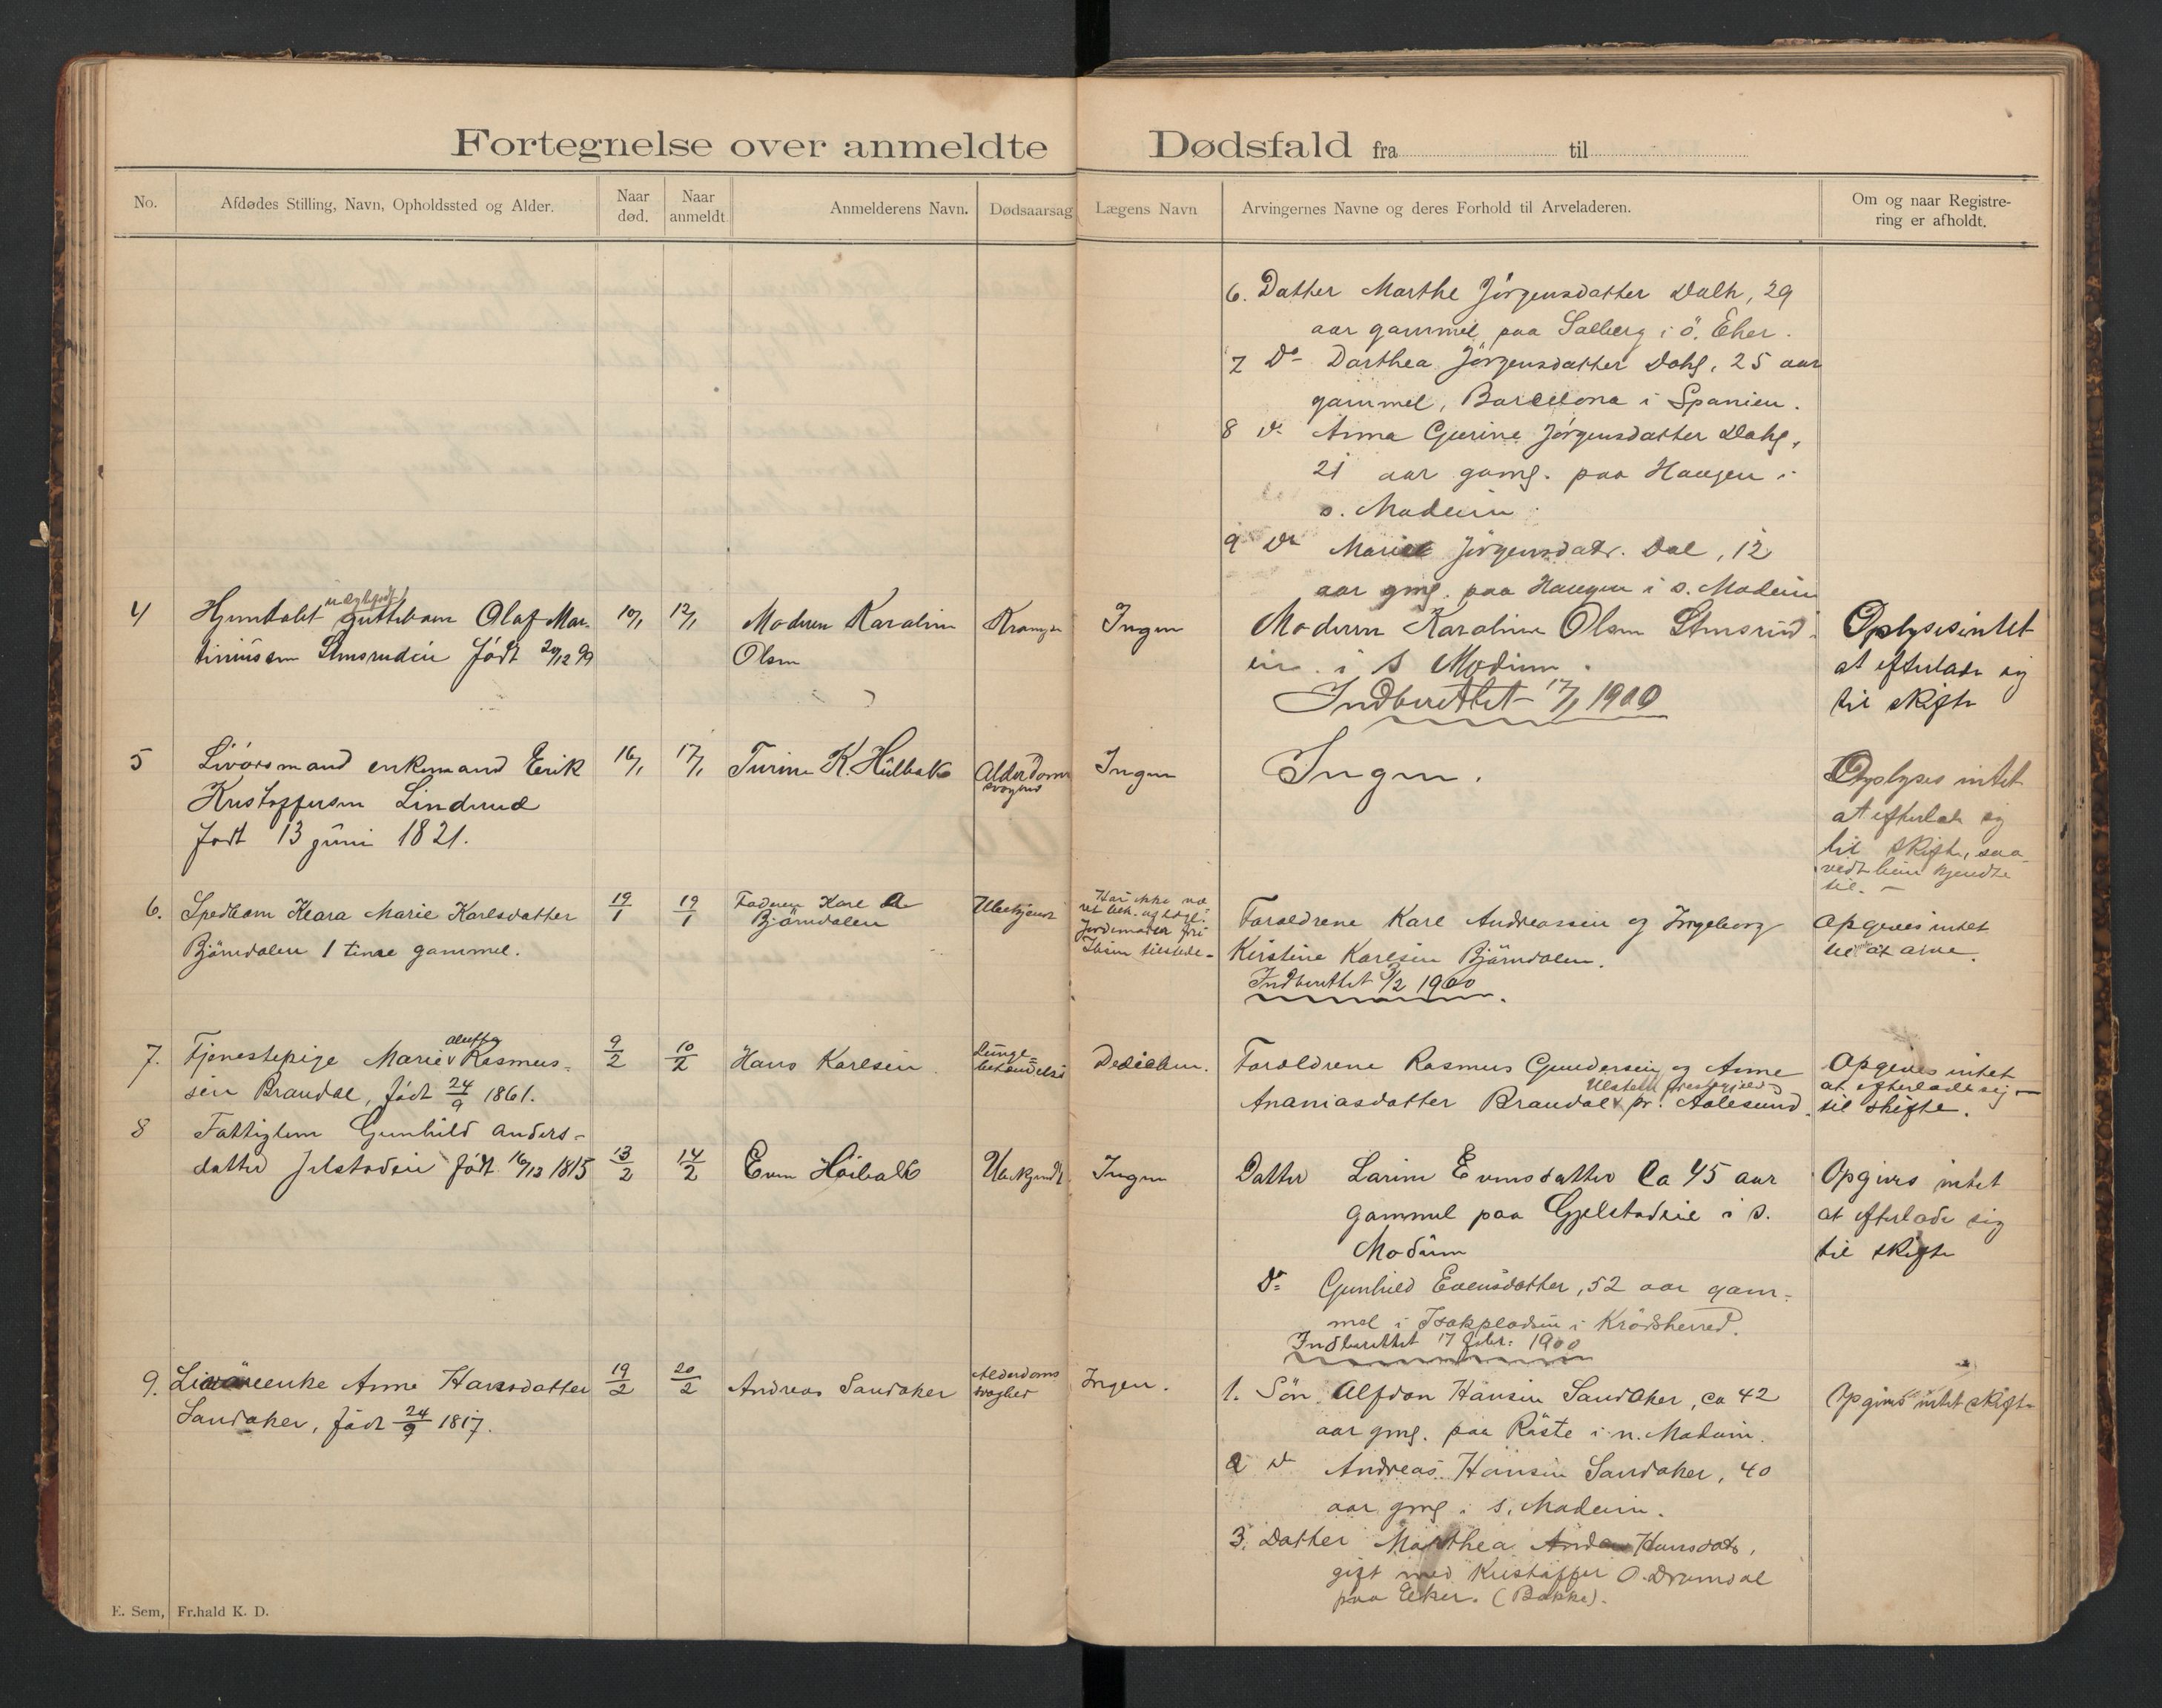 Fortegnelse over anmeldte Dødsfald fra til
No.
Afdødes Stilling, Navn, Opholdssted og Alder.
Naar død.
Naar anmeldt
Anmelderens Navn.
Dødsaarsag
Lægens Navn
Arvingernes Navne og deres Forhold til Arveladeren.
Om og naar Registre-
ring er afholdt.
6. Datter Marthe Jörgensdatter Dalh, 29
aar gammel, paa Solberg i ö. Eker.
7 Do Dorthea Jörgensdatter Dahl, 25 aar
gammel, Barcelona i Spanien.
8 Do Anna Gurine Jörgensdatter Dahl,
21 aar gaml. paa Haugen i
s. Modum
9 Do Marie Jörgensdatr. Dal, 12
aar gml. paa Haugen i s. Modum
4
Hjemdøbt uægtefødt guttebarn Olaf Mar-
tiniussen født 20/12 99
10/1
12/1
Moderen Karoline
Olsen
Krampe
Ingen
Moderen Karoline Olsen
i S Modum.
Indberettet 17/1 1900
Oplyses intet
at efterlade sig
til skifte
5
Livörsmand enkemand Erik
Kristoffersen Lindrud
født 13 juni 1821.
16/1
17/1
Turine K. Hulbak
Alderdoms
svaghed
Ingen
Ingen.
Oplyses intet
at efterlade sig
til skifte, saa
vidt hun kjendte
til.
6.
Spedbarn Klara Marie Karlsdatter
Björndalen 1 time gammel.
19/1
19/1
Faderen Karl A
Björndalen
Ubekjendt
Har ikke væ-
ret beh. af læge.
Jordemoder
Ibsen tilstede
Foreldrene Karl Andreassen og Ingeborg
Kirstine Karlsen Björndalen.
Indberettet 3/2 1900
Opgives intet
at arve.
7.
Tjenestepige Marie Oluffa Rasmus-
sen Brandal, født 24/9 1861.
9/2
10/2
Hans Karlsen
Lunge
betændelse
Dedichen.
Foreldrene Rasmus Gundersen og Anne
Ananiasdatter Brandal Ulsten Prestegjeld pr. Aalesund.
Opgives intet
at efterlade sig
til skifte.
8
Fattiglem Gunhild Anders-
datter født 16/12 1815
13/2
14/2
Even Hoibak
Ubekjendt
Ingen
Datter Larine Evensdatter Ca 45 aar
gammel paa Gjelstadeie i S.
Modum
Do Gunhild Evensdatter, 52 aar gam-
mel i Isakpladsen i Krödsherred.
Indberettet 17 Febr. 1900
Opgives intet
at efterlade sig
til skifte
9.
Anne Hansdatter
Sandaker, födt 24/9 1817.
19/2
20/2
Andreas Sandaker
Alderdoms
svaghed
Ingen.
1. Sön Alfdan Hansen Sandaker, ca 42
aar gml. paa Röste i n. Modum.
2 Do Andreas Hansen Sandaker, 40
aar gml i s. Modum.
3. Datter Marthea Hansdatr,
gift med Kristoffer O. Dramdal
paa Eker. (Bakke).
Opgives intet skifte
E. Sem, Fr.hald K. D.